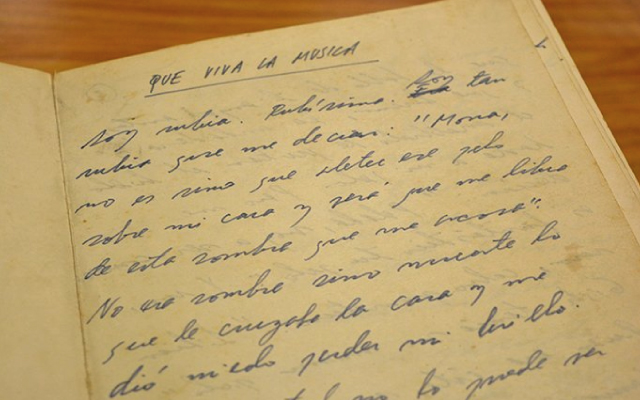 QUE VIVA LA MUSICA
Soy rubia. Rubísima. Soy tan
rubia que me decían: "Mona,
no es sino que aletee ese pelo
sobre mi cara y verá que me libra
de esta sombra que me acosa".
No era sombra sino muerte lo
que le cruzaba la cara y me
dió miedo perder mi brillo.
no lo puede ser